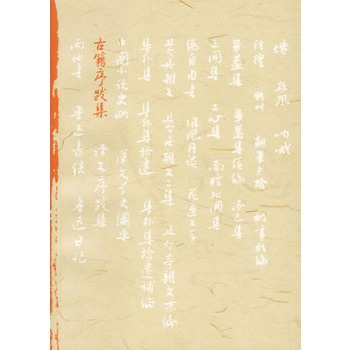 坟 热风 呐喊
彷徨 野草 朝花夕拾 故事新编
华盖集 华盖集续编 而已集
三闲集 二心集 南腔北调集
伪自由书 准风月谈 花边文学
且介亭杂文 且介亭杂文二集 且介亭杂文末编
集外集 集外集拾遗 集外集拾遗补编
中国小说史略 汉文学史纲要
古籍序跋集 译文序跋集
两地书 书信 鲁迅日记